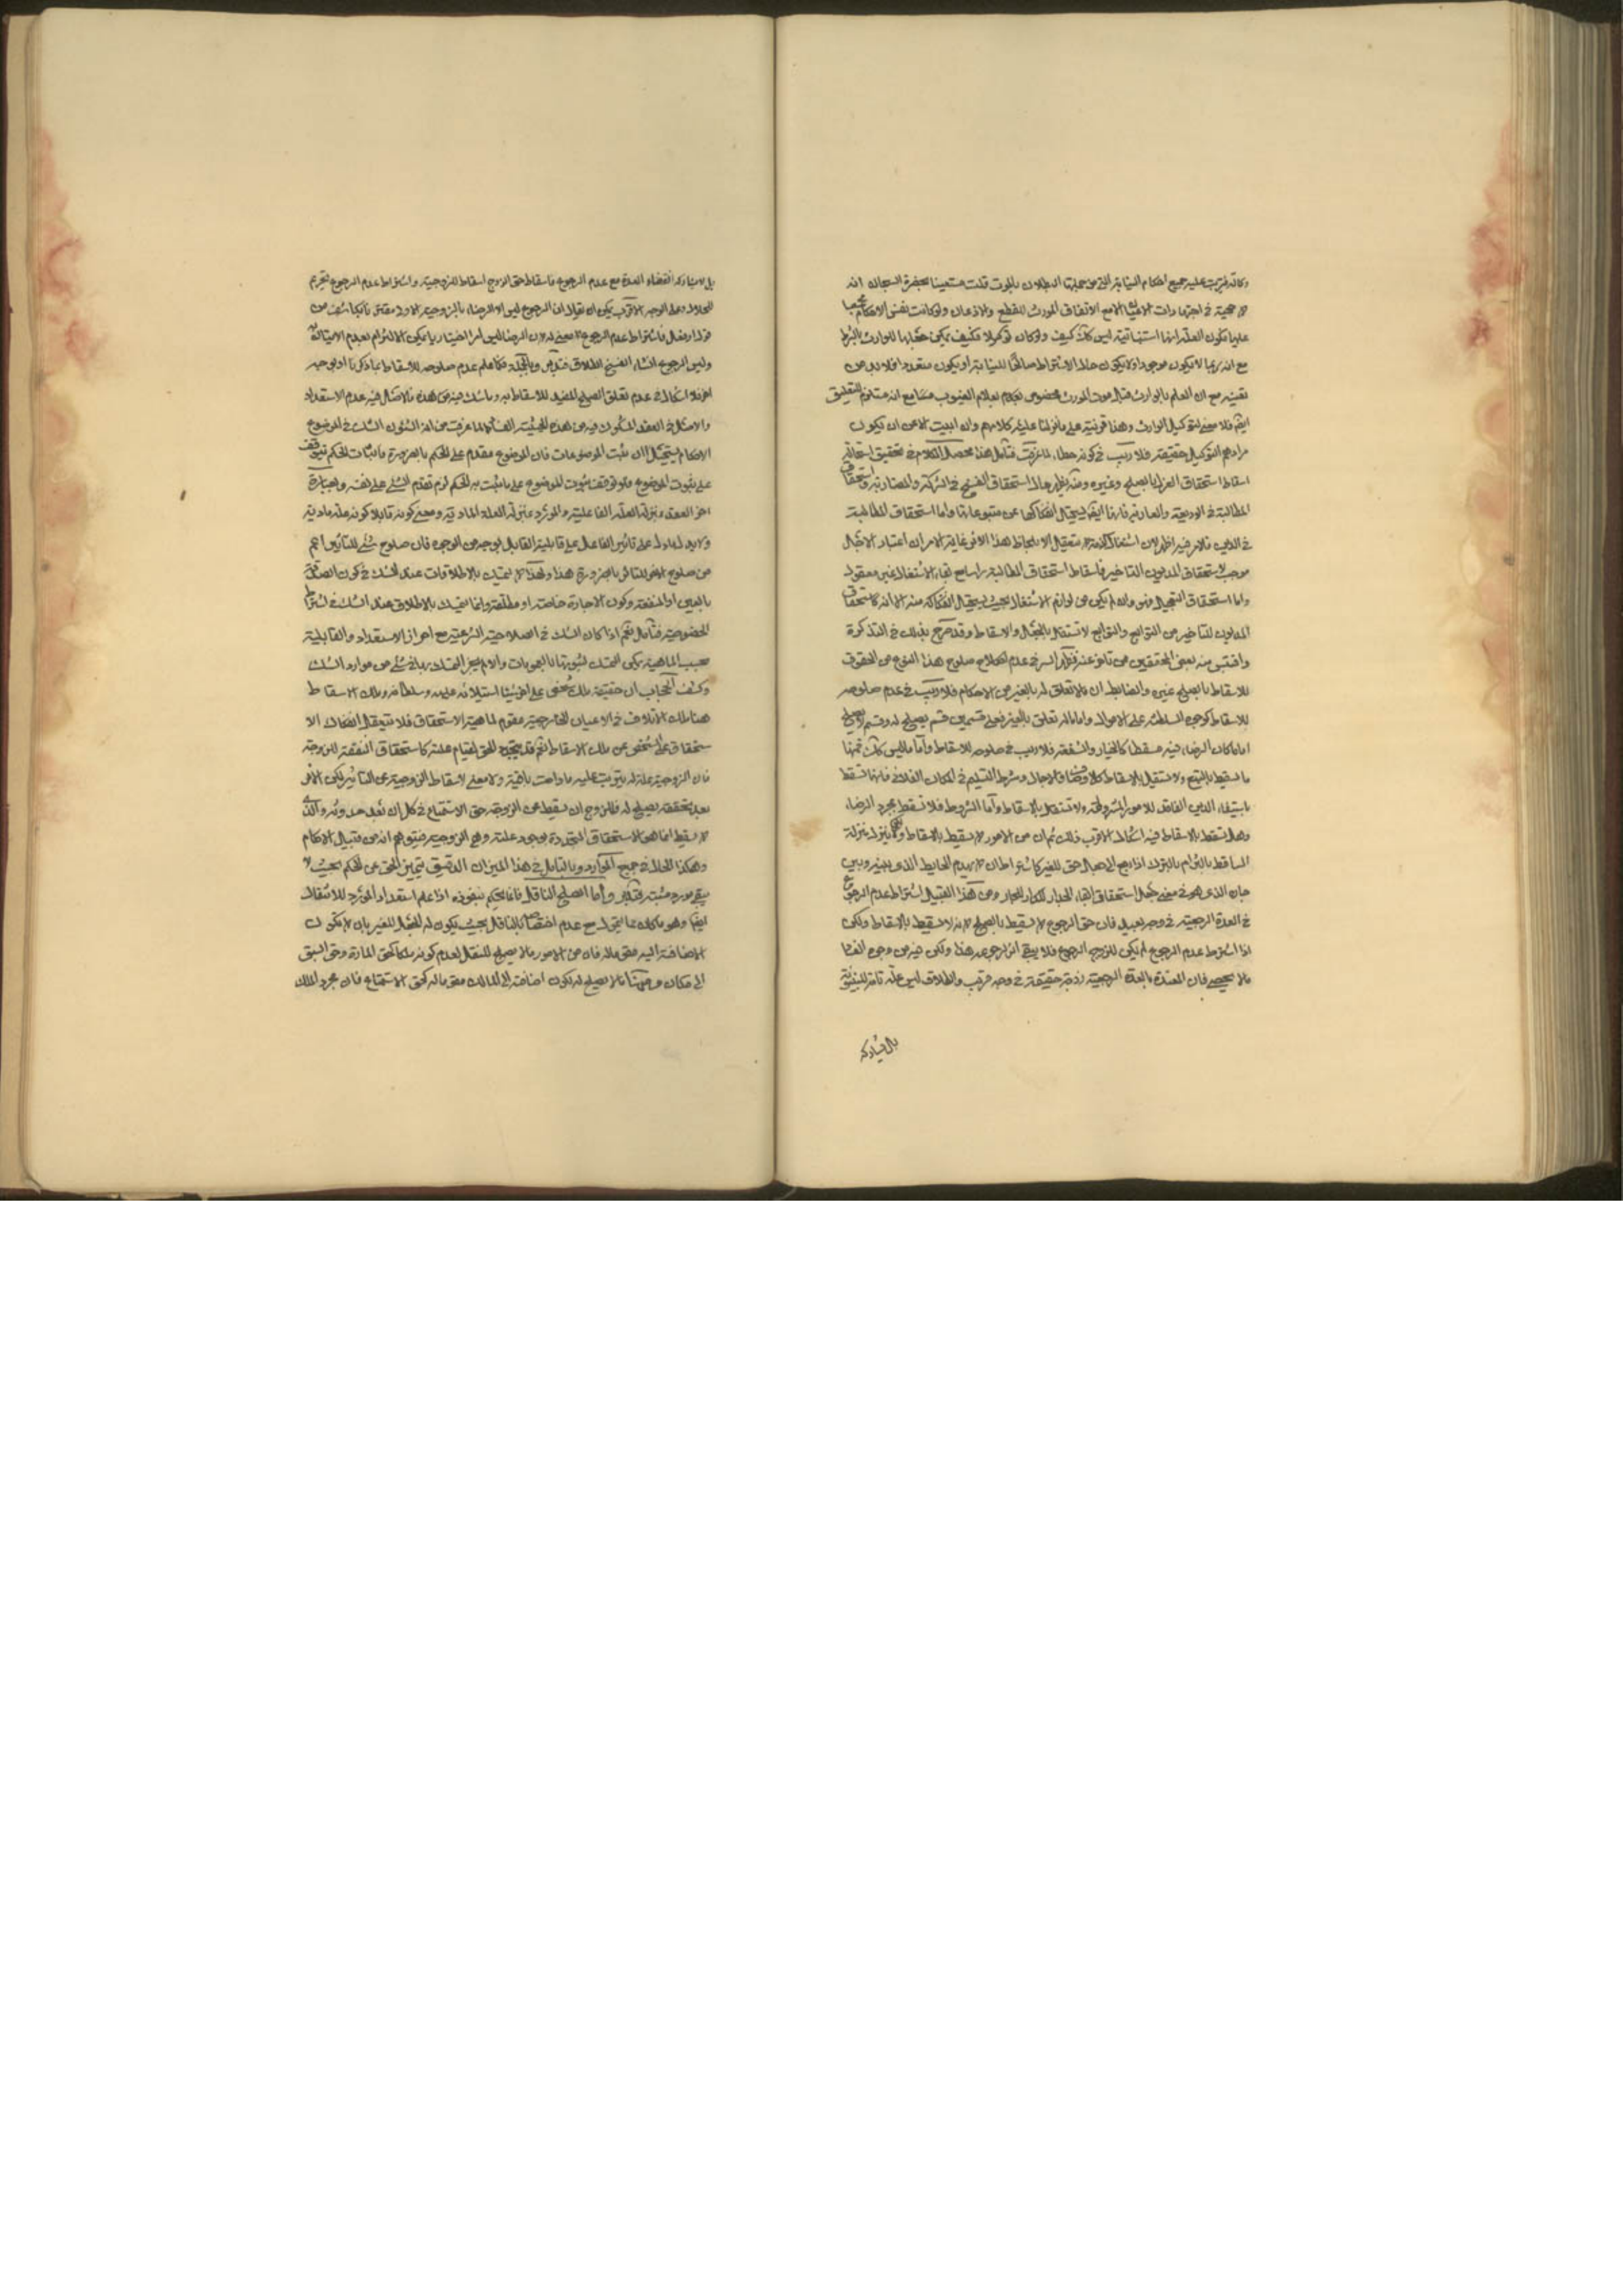 وكالة فيترتب عليه جميع احكام النيابة التي من جملتها البطلان بالموت قلت مستعينا بحضرة السبحان انه
لا حجية في اجتهادات الاعيان الا مع الاتفاق المورث للقطع والاذعان ولو كانت نفس الاحكام
عليها لكون العلة انها استنباتية ليس كك كيف ولو كان توكيلا فكيف يمكن جعلها للوارث بالشرط
مع انه ربما لا يكون موجودا ولا يكون حال الاشتراط صالحا للنيابة او يكون متعددا فلا بد من
تعيينه مع ان العلم بالوارث قبل موت المورث مخصوص بعلام الغيوب مع انه مستلزم للتعليق
ايضا فلا معنى لتوكيل الوارث وهذا قرينة على ما نزلنا عليه كلامهم وان ابيت الا عن ان يكون
مرادهم التوكيل حقيقة فلا ريب في كونه خطاء لما عرفت فتأمل هذا محصل الكلام في تحقيق استحالة
اسقاط استحقاق العزل بالصلح وغيره ومنه يظهر حال استحقاق الفسخ في الشركة والمضاربة واستحقاق
المطالبة في الوديعة والعارية فانها ايضا يستحيل انفكاكها عن متبوعاتها واما استحقاق المطالبة
في الدين فالامر فيه اظهر لان اشتغال الذمة لا يتعقل الا بلحاظ هذا الاثر غاية الامر ان اعتبار الاجل
موجب لاستحقاق المديون التاخير فاسقاط استحقاق المطالبة راسا مع بقاء الاشتغال غير معقول
واما استحقاق التعجيل فهو وان لم يكن من لوازم الاشتغال بحيث يستحيل انفكاكه منه الا انه كاستحقاق
المديون للتاخير من التوابع والتوابع لا تستقل بالجعل والاسقاط وقد صرح بذلك في التذكرة
واقتبس منه بعض المحققين من تاخر عنه فظهر السر في عدم صلوح هذا النوع من الحقوق
للاسقاط بالصلح وغيره والضابط ان ما لا تعلق له بالغير من الاحكام فلا ريب في عدم صلوحه
للاسقاط كوجوب السلطنة على الاموال واما ما له تعلق بالغير فعلى قسمين قسم يصلح له وقسم لا يصلح
اما ما كان الرضاء فيه مسقطا كالخيار والشفعة فلا ريب في صلوحه للاسقاط واما ما ليس كك فمنها
ما يسقط بالتبع ولا يستقل بالاسقاط كالاجل وشرط التسليم في المكان الفلاني فانها تسقط
باستيفاء الدين الفاقد للامور المشروطة ولا تستقل بالاسقاط واما الشروط فلا تسقط بمجرد الرضاء
وهل تسقط بالاسقاط فيه اشكال الاقرب ذلك ثم ان من الامور لا يسقط بالاسقاط ولكنه ينزل منزلة
الساقط بالتزام بالترك اذا رجع الى جعل حق للغير كاشتراط ان لا يهدم الحايط الذي بينه وبين
جاره الذي هو في معنى جعل استحقاق ابقاء الجدار للجار ومن هذا القبيل اشتراط عدم الرجوع
في العدة الرجعية في وجه بعيد فان حق الرجوع لا يسقط بالصلح لانه لا يسقط بالاسقاط ولكن
اذا اشترط عدم الرجوع لم يكن للزوج الرجوع فلا يبقى اثر لرجوعه هذا ولكن فيه من وجوه الفساد
ما لا يحصى فان المعتدة بالعدة الرجعية زوجة حقيقة في وجه قريب والطلاق ليس علة تامة للبينونة
بل بمشاركة
بل بمشاركة انقضاء العدة مع عدم الرجوع فاسقاط حق الزوج اسقاط للزوجية واشتراط عدم الرجوع تحريم
للحلال وعلى الوجه الاخر يمكن ان يقال ان الرجوع ليس الا الرضاء بالزوجية الاولى بما يكشف من
قول او فعل فاشتراط عدم الرجوع لا معنى له لان الرضا ليس امرا اختياريا يمكن الالتزام بعدم الاتيان به
وليس الرجوع انشاء لفسخ الطلاق فتدبر وبالجملة فكلما علم عدم صلوحه للاسقاط بما ذكرنا او بوجه
اخر فلا اشكال في عدم تعلق الصلح المفيد للاسقاط به وما شك فيه من هذه فالاصل فيه عدم الاستعداد
والاصل في العقد المشكوك فيه من هذه الحيثية الفساد لما عرفت من ان الشك في الموضوع
الاحكام يستحيل ان يثبت الموضوعات فان الموضوع مقدم على الحكم بالضرورة فاثبات الحكم يتوقف
على ثبوت الموضوع فلو توقف ثبوت الموضوع على ما يثبت به الحكم لزم تقدم الشيء على نفسه وبعبارة
اخرى العقد بمنزلة العلة الفاعلية والمورد بمنزلة العلة المادية ومعنى كونه قابلا كونه علة مادية
ولا يدل ما دل على تاثير الفاعل على قابلية القابل بوجه من الوجوه فان صلوح شيء للتاثير اعم
من صلوح الاخر للتاثر بالضرورة هذا ولهذا لا يتمسك بالاطلاقات عند الشك في كون الصداق
بالعين او المنفعة وكون الاجارة خاصة او مطلقة وانما يتمسك بالاطلاق عند الشك في اشتراط
الخصوصية فتأمل نعم اذا كان الشك في الصلاحية الشرعية مع احراز الاستعداد والقابلية
بحسب الماهية يمكن التمسك لثبوتها بالعمومات والا لم يجز التمسك بها في شيء من موارد الشك
وكشف الحجاب ان حقيقة ملك شخص على اخر شيئا استيلائه عليه وسلطانه وملك الاسقاط
هنا ملك الاتلاف في الاعيان الخارجية مقوم لماهية الاستحقاق فلا يتعقل انفكاك الا
ستحقاق على الشخص عن ملك الاسقاط نعم قد يتجدد الحق لقيام علته كاستحقاق النفقة للزوجة
فان الزوجية علة له يترتب عليه ما دامت باقية ولا معنى لاسقاط الزوجية عن التاثير لكن الاثر
بعد تحققه يصلح له فللزوج ان يسقط عن الزوجة حق الاستمتاع في كل ان بعد حدوثه والذي
لا يسقط انما هي الاستحقاق المتجددة بوجود علته وهي الزوجية فيتوهم انه من قبيل الاحكام
وهكذا الحال في جميع الموارد وبالتامل في هذا الميزان الدقيق يتميز الحق عن الحكم بحيث لا
يبقى مورد مشتبه فتدبر واما الصلح الناقل فانما يحكم بنفوذه اذا علم استعداد المورد للانتقال
ايضا وهو ما كان مما يتمول مع عدم اختصاصه بالناقل بحيث يكون له الجعل للغير بان لا يكون
الاضافة اليه مقومة له فان من الامور ما لا يصلح للنقل لعدم كونه ملكا كحق المارة وحق السبق
الى مكان ومنها ما لا يصلح له لكون اضافته الى المالك مقومة له كحق الاستمتاع فان مجرد الملك